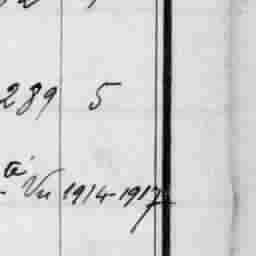 289 5
té
Vu 1914-1917